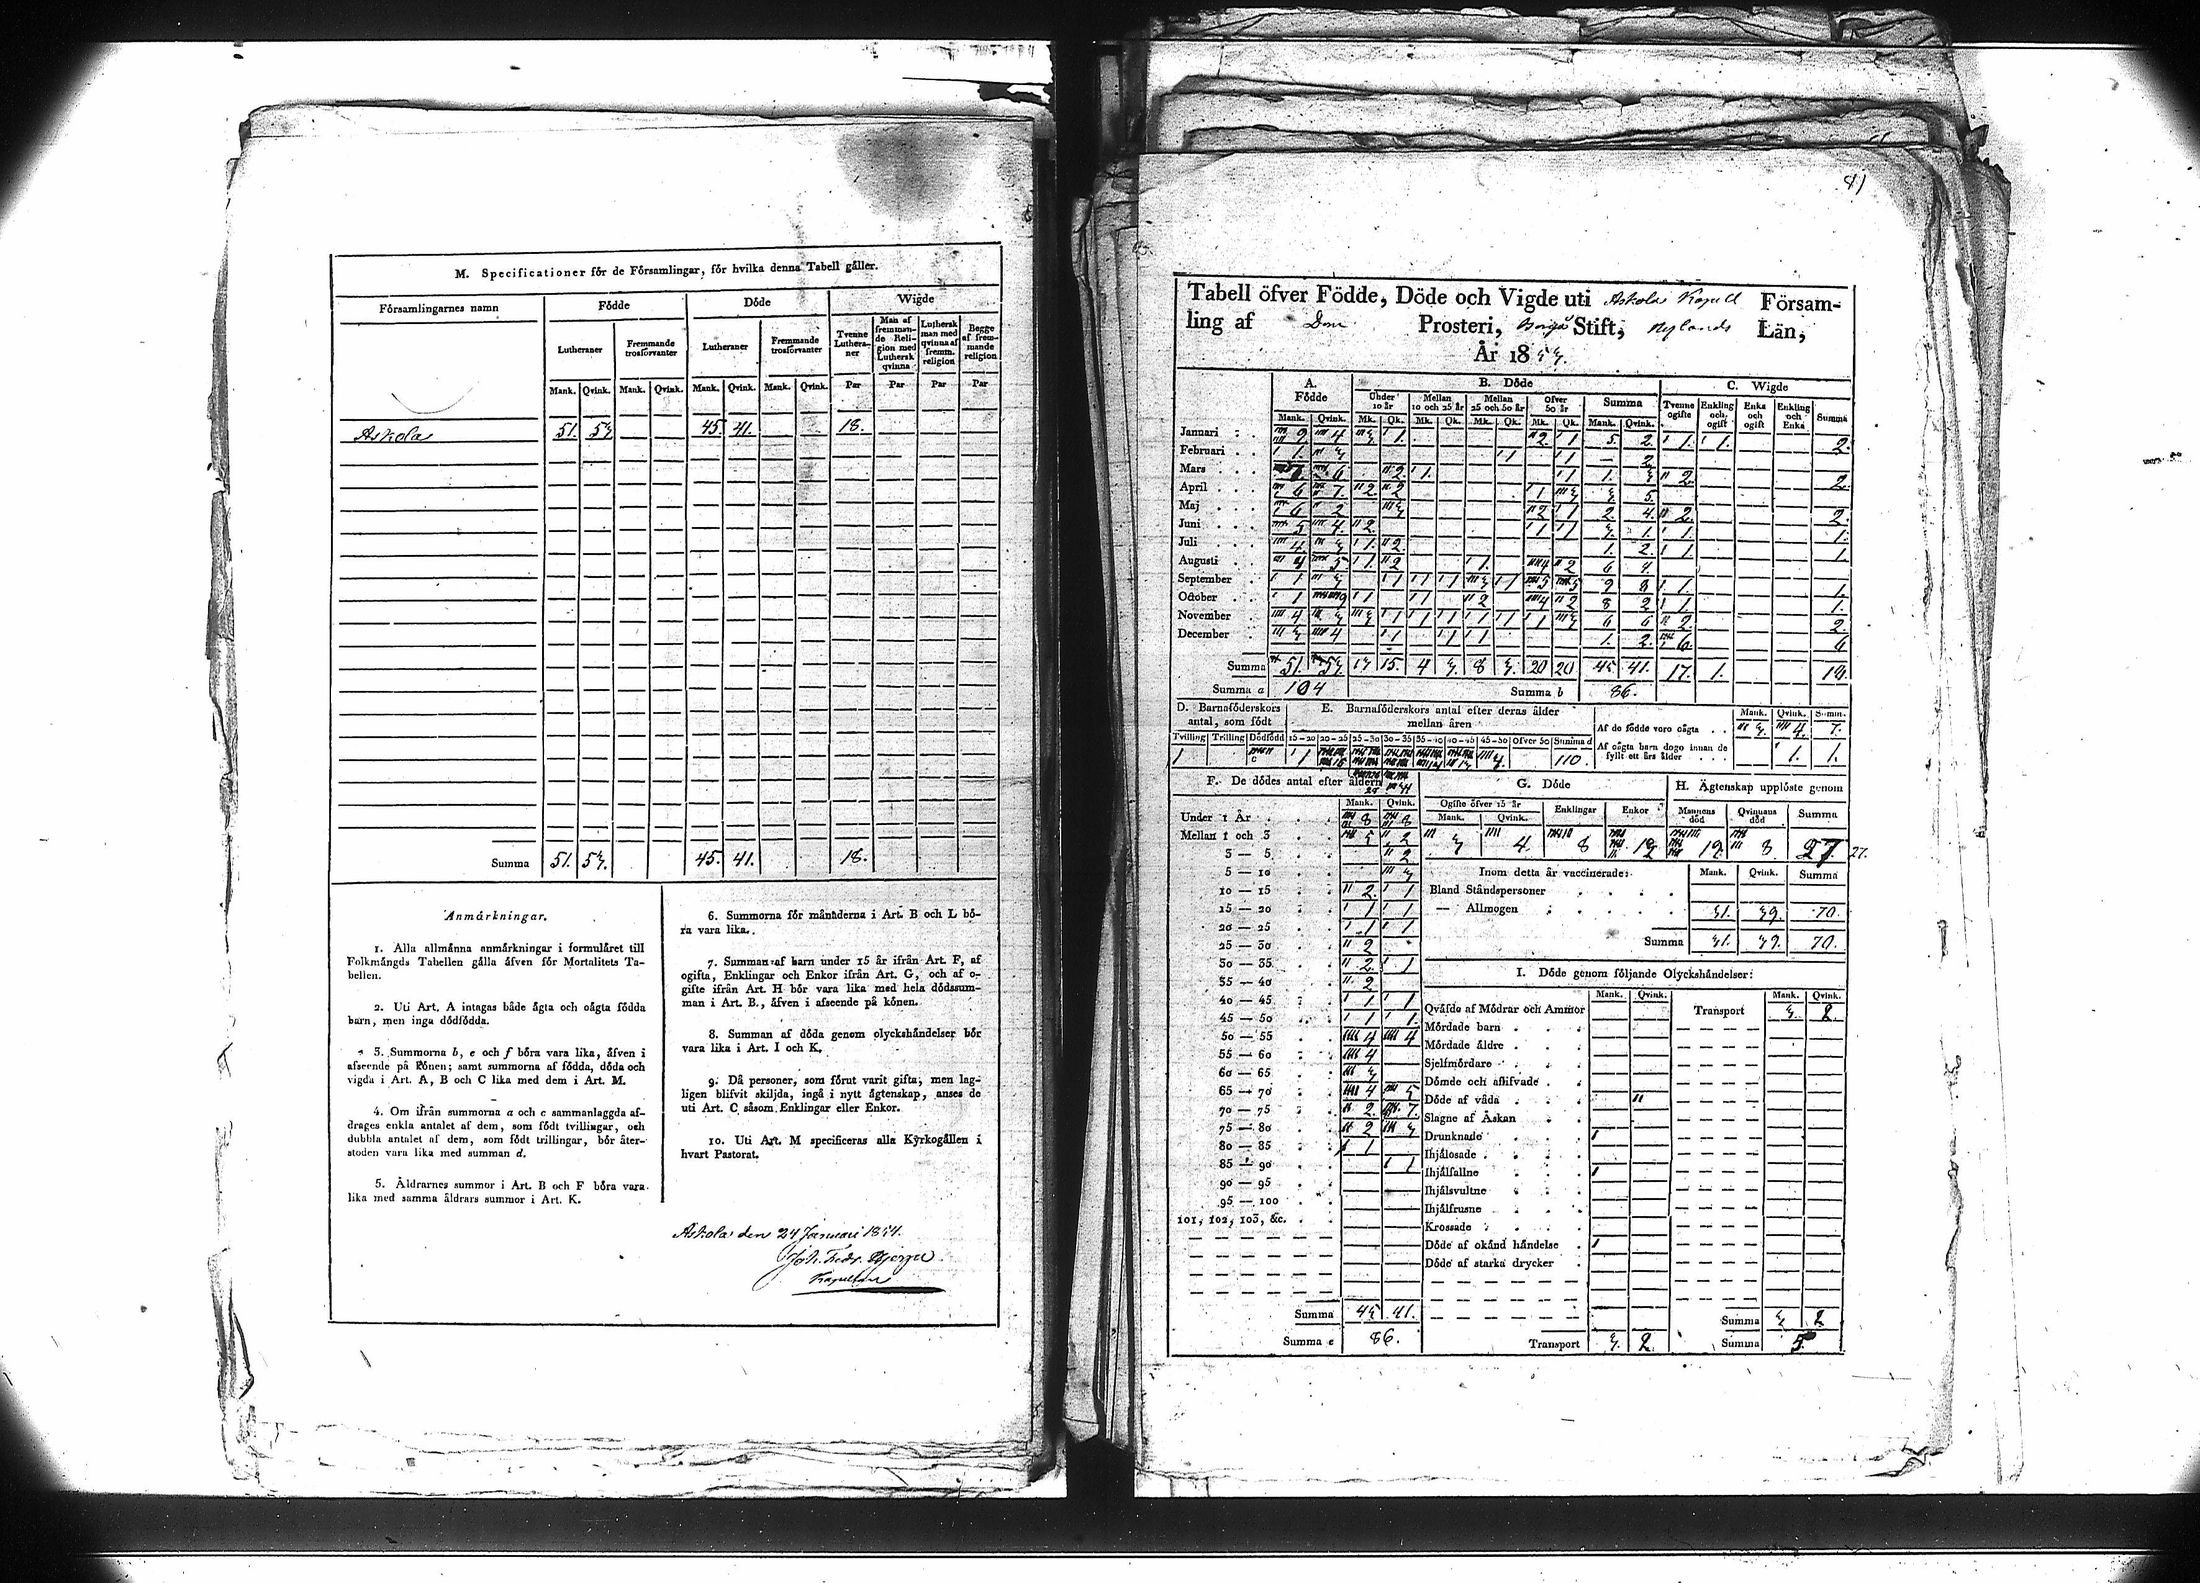 M. Specificationer för de Församlingar, för hvilka denna Tabell gäller.
Församlingarnes namn Födde Döde Wigde
Lutheraner Fremmande trosförvanter Lutheraner Fremmande trosförvanter Tvenne Lutheraner Man af fremmande Religion med Luthersk qvinna Luthersk man med qvinna af fremm. religion Begge af fremmande religion
Mank. Qvink. Mank. Qvink. Mank. Qvink. Mank. Qvink. Par Par Par Par
Askola 51. 53. 45. 41. 18.
Summa 51. 53. 45. 41. 18.
Anmärkningar.
1. Alla allmänna anmärkningar i formuläret till
Folkmängds Tabellen gälla äfven för Mortalitets Ta-
bellen.
2. Uti Art. A intagas både ägta och oägta födda
barn, men inga dödfödda.
3. Summorna b, e och f böra vara lika, äfven i
afseende på könen; samt summorna af födda, döda och
vigda i Art. A, B och C lika med dem i Art. M.
4. Om ifrån summorna a och c sammanlaggda af-
drages enkla antalet af dem, som födt tvillingar, och
dubbla antalet af dem, som födt trillingar, bör åter-
stoden vara lika med summan d.
5. Åldrarnes summor i Art. B och F böra vara
lika med samma åldrars summor i Art. K.
6. Summorna för månaderna i Art. B och L bö-
ra vara lika.
7. Summan af barn under 15 år ifrån Art. F, af
ogifta, Enklingar och Enkor ifrån Art. G, och af o-
gifte ifrån Art. H bör vara lika med hela dödssum-
man i Art. B., äfven i afseende på könen.
8. Summan af döda genom olyckshändelser bör
vara lika i Art. I och K.
9. Då personer, som förut varit gifta, men lag-
ligen blifvit skiljda, ingå i nytt ägtenskap, anses de
uti Art. C såsom Enklingar eller Enkor.
10. Uti Art. M specificeras alla Kyrkogällen i
hvart Pastorat.
Askola den 24 Januari 1854.
Tabell öfver Födde, Döde och Vigde uti Askola Kapell Försam-
ling af Prosteri, Borgå Stift, Nylands Län,
År 1853.
A. Födde B. Döde C. Wigde
Under 10 år Mellan 10 och 25 år Mellan 25 och 50 år Öfver 50 år Summa Tvenne ogifte Enkling och ogift Enka och ogift Enkling och Enka Summa
Mank. Qvink. Mk. Qk. Mk. Qk. Mk. Qk. Mk. Qk. Mank. Qvink.
Januari 4 3 1. 2 1 5. 2. 1. 1. 2.
Februari 1. 3 1 1 2
Mars 6 2 1. 1 1. 3 2. 2.
April 6 7. 2. 2 1 3 3 5.
Maj 6 2 3 2 1 2. 4. 2. 2.
Juni 5 4. 2. 1 1 3. 1. 1. 1.
Juli 4. 3 1 2. 1. 2. 1 1.
Augusti 4 5. 1. 2 1. 4 2 6 4.
September 1 3 1 1 1 3 1 5 5 9 8 1. 1.
October 1 9 1 1 2 4 2 8 2 1 1.
November 4 3 3 1 1 1 1 1 1 3 6 6 2. 2.
December 3 4 1 1 1 1. 2. 6. 6
Summa 51. 53. 13 15. 4 3 8 3. 20 20 45 41. 17. 1. 18.
Summa a 104 Summa b 86.
D. Barnaföderskors antal, som födt
E. Barnaföderskors antal efter deras ålder mellan åren
Tvilling Trilling Dödfödd 15-20 20-25 25-30 30-35 35-40 40-45 45-50 Öfver 50 Summa d
1 1 110.
Mank. Qvink. Summ.
Af de födde voro oägta 3. 4. 7.
Af oägta barn dogo innan de
fyllt ett års ålder 1. 1.
F. De dödes antal efter åldern
Mank. Qvink.
Under 1 År 8 8
Mellan 1 och 3 5 2
3 — 5 2
5 — 10 3
10 — 15 2. 1
15 — 20 1 1
20 — 25 1 1
25 — 30 2
30 — 35 2. 1
35 — 40 2
40 — 45 1 1
45 — 50 1 1.
50 — 55 4 4
55 — 60 4
60 — 65 3
65 — 70 4 5
70 — 75 2. 7.
75 — 80 2 3
80 — 85 1
85 — 90 1
90 — 95
95 — 100
101, 102, 103, &c.
Summa 45 41.
Summa e 86.
G. Döde
Ogifte öfver 15 år Enklingar Enkor
Mank. Qvink.
3 4. 8 12
H. Ägtenskap upplöste genom
Mannens död Qvinnans död Summa
19 8. 27. 27.
Inom detta år vaccinerade: Mank. Qvink. Summa
Bland Ståndspersoner
— Allmogen 31. 39. 70.
Summa 31. 39. 70.
I. Döde genom följande Olyckshändelser:
Mank. Qvink. Mank. Qvink.
Qväfde af Mödrar och Ammor Transport 3. 2.
Mördade barn
Mördade äldre
Sjelfmördare
Dömde och aflifvade
Döde af våda "
Slagne af Åskan
Drunknade 1
Ihjälosade
Ihjälfallne 1
Ihjälsvultne
Ihjälfrusne
Krossade
Döde af okänd händelse 1
Döde af starka drycker
Summa 3 2
Transport 3. 2. Summa 5.